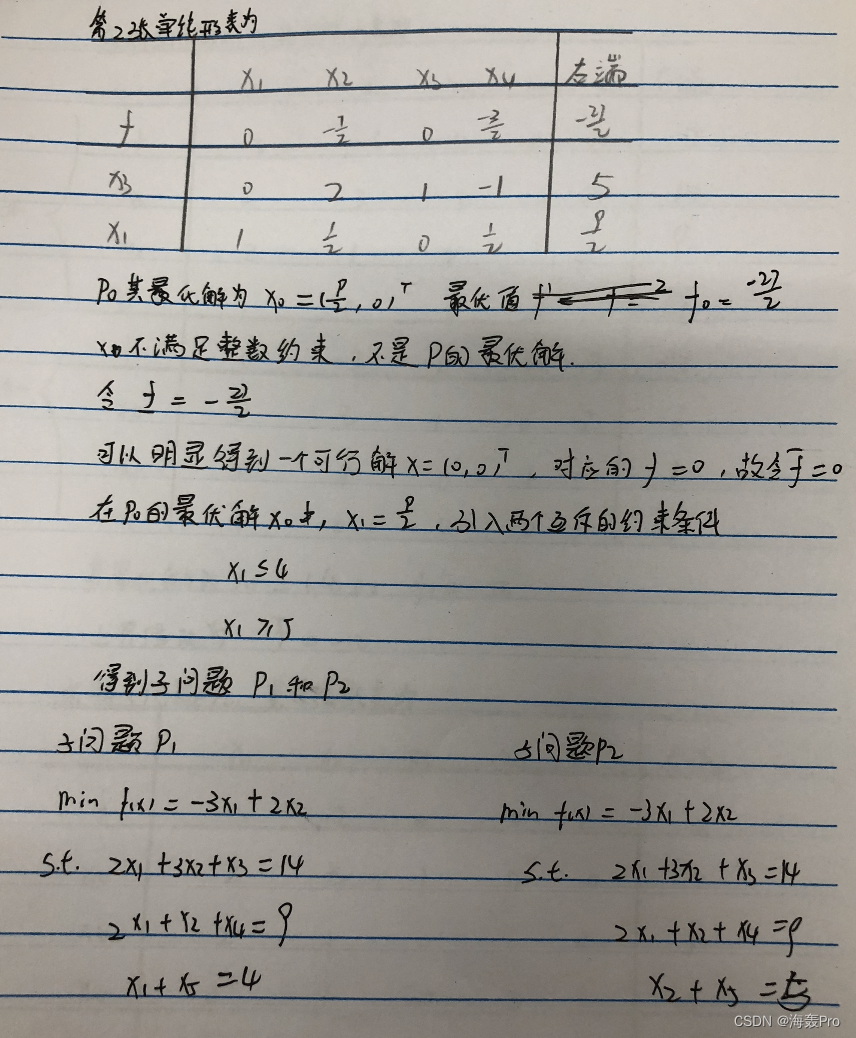 第2张单纯形表为
x1 x2 x3 x4 右端
f 0 -7/2 0 -3/2 -27/2
x3 0 2 1 -1 5
x1 1 1/2 0 1/2 9/2
P0其最优解为 x0 = (9/2, 0)^T 最优值 f0 = -27/2
x0不满足整数约束，不是P的最优解.
令 f = -27/2
可以明显得到一个可行解x=(0,0)^T，对应的f=0，故令f̅=0
在P0的最优解x0中，x1=9/2，引入两个互斥的约束条件
x1≤4
x1≥5
得到子问题 P1 和 P2
子问题 P1 子问题P2
min f(x) = -3x1 + 2x2 min f(x) = -3x1 + 2x2
s.t. 2x1 + 3x2 + x3 = 14 s.t. 2x1 + 3x2 + x3 = 14
2x1 + x2 + x4 = 9 2x1 + x2 + x4 = 9
x1 + x5 = 4 x2 + x5 =
CSDN @海轰Pro